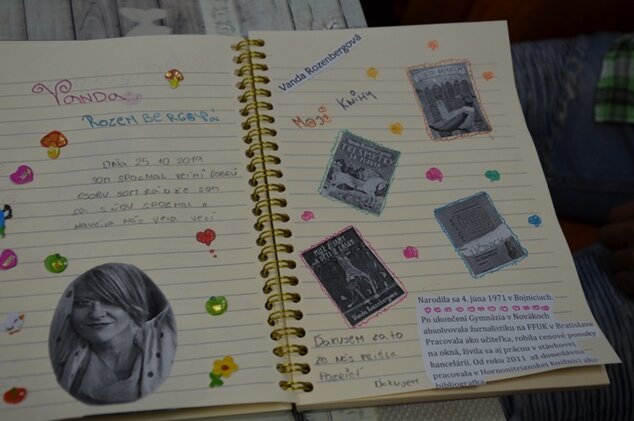 VANDA
ROZEMBERGOVÁ
DŇA 25.10.2019
SOM SPOZNAL VEĽMI DOBRÚ
OSOBU SOM RÁD KE SOM
SA S ŇOU SPOZNAL A
NAUČILA NÁS VEĽA VECÍ
Vanda Rozenbergová
MOJE KNIHY
TRI SMRTKY
SA PLAVIA
MUŽ Z JAMY
A DETI Z LÁSKY
Vanda Rozenbergová
Narodila sa 4. júna 1971 v Bojniciach.
Po ukončení Gymnázia v Novákoch
absolvovala žurnalistiku na FFUK v Bratislave
Pracovala ako učiteľka, robila cenové ponuky
na okná, živila sa aj prácou v stávkovej
kancelárii. Od roku 2011 až donedávna
pracovala v Hornonitrianskej knižnici ako
bibliografka
ĎAKUJEM ZA TO
ŽE NÁS PRIŠLA
POZRIEŤ
ĎAKUJEM